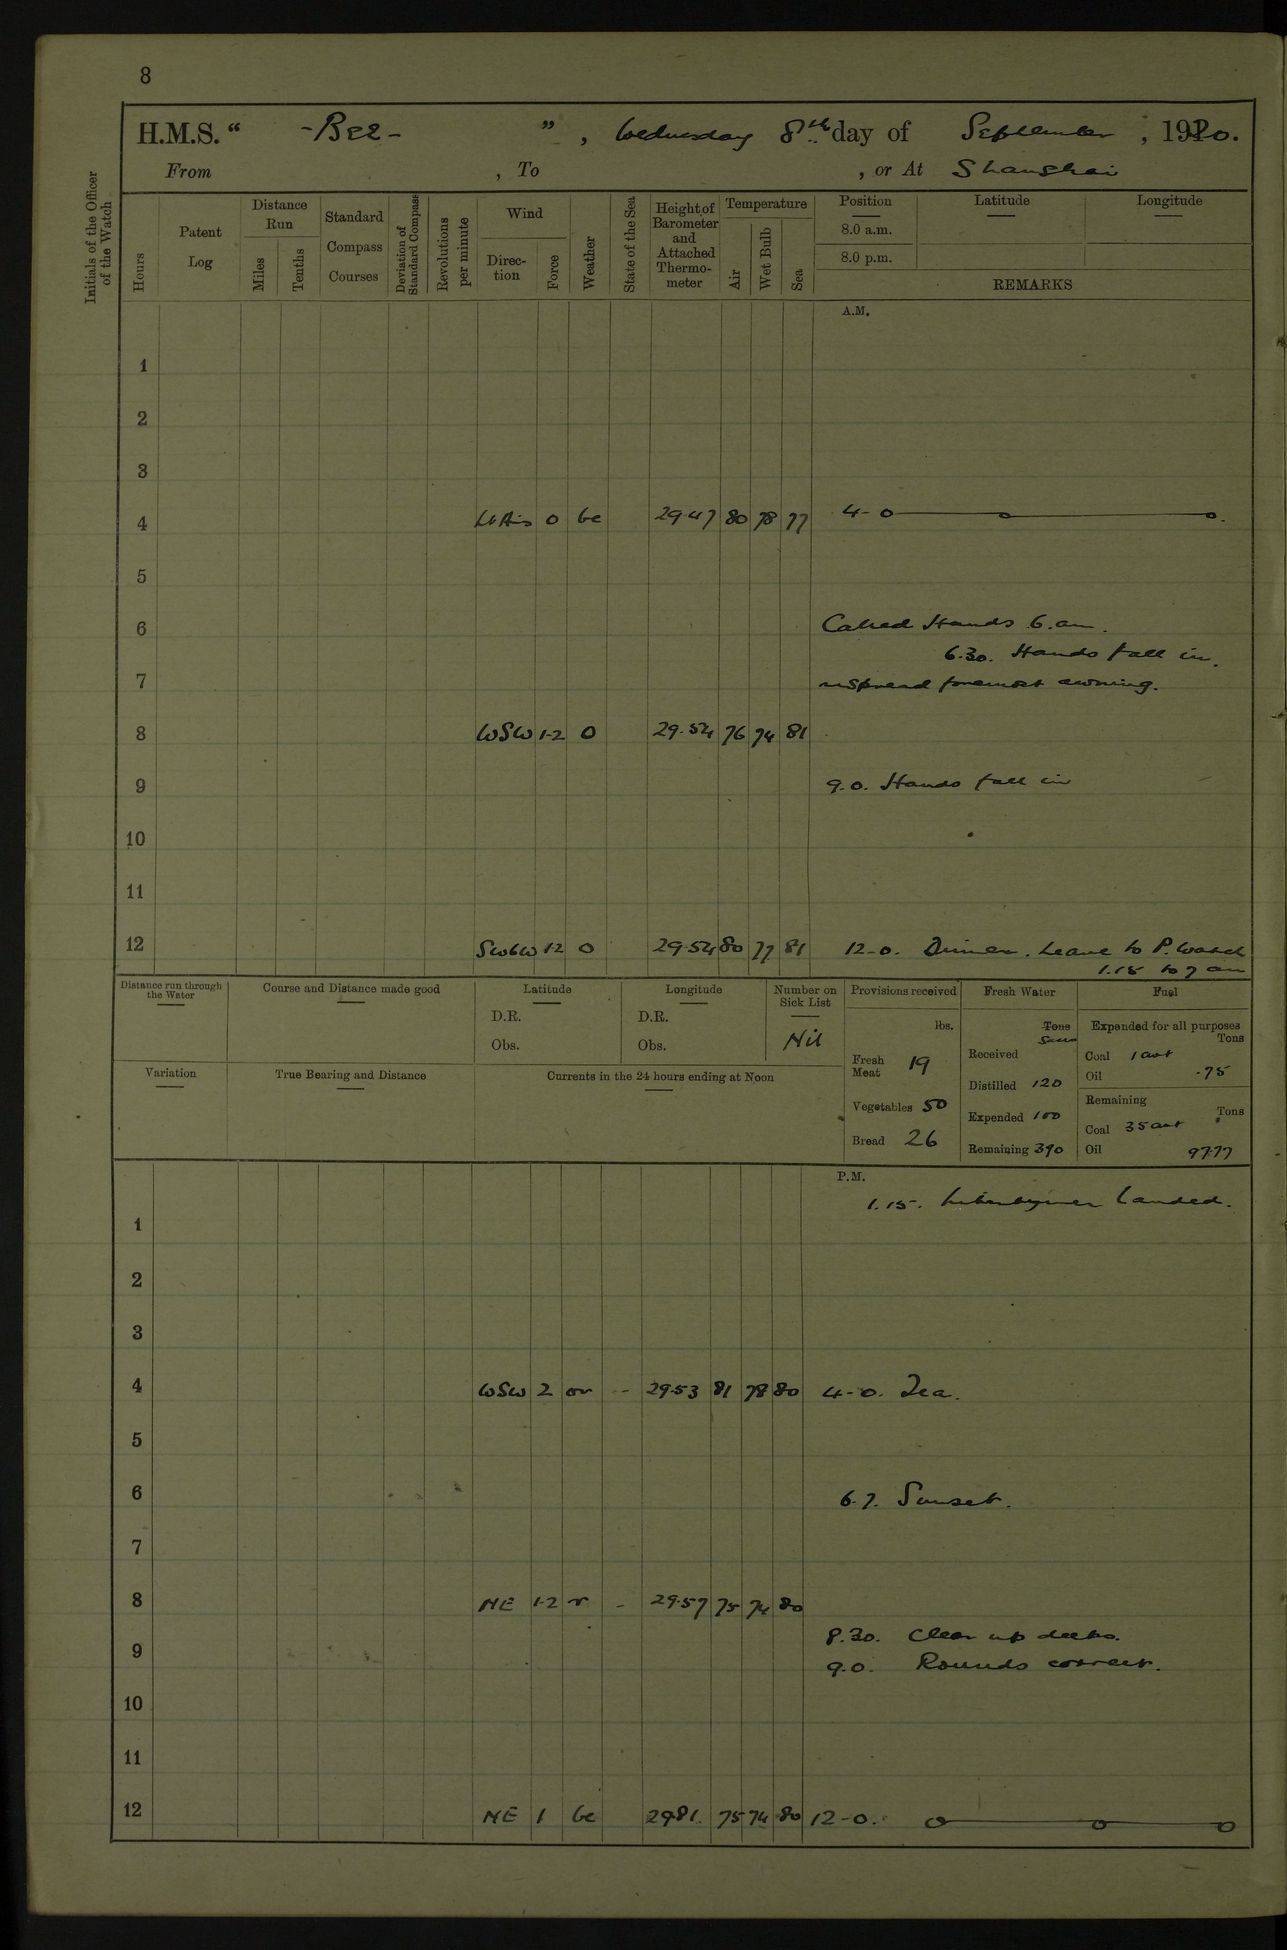 8
H.M.S. “ -Bee- ” , Wednesday 8th day of September , 1920.
From , To , or At Shanghai
Initials of the Officer of the Watch
Hours
Patent Log
Distance Run
Miles
Tenths
Standard Compass Courses
Deviation of Standard Compass
Revolutions per minute
Wind
Direc-tion
Force
Weather
State of the Sea
Height of Barometer and Attached Thermo-meter
Temperature
Air
Wet Bulb
Sea
Position
Latitude
Longitude
8.0 a.m.
8.0 p.m.
REMARKS
A.M.
1
2
3
4 Lt Airs 0 bc 29.47 80 78 77 4-0
5
6 Called Hands 6. am.
6.30. Hands fall in.
7 unspread foremost awning.
8 WSW 1-2 O 29.54 76 74 81
9 9.0. Hands fall in
10
11
12 SWbW 1-2 O 29.54 80 77 81 12-0. Dinner. Leave to P. Watch
1.15 to 7 am
Distance run through the Water
Course and Distance made good
Latitude
D.R.
Obs.
Longitude
D.R.
Obs.
Number on Sick List
Nil
Provisions received
lbs.
Fresh Meat 19
Vegetables 50
Bread 26
Fresh Water
Tons
Received
Distilled 120
Expended 100
Remaining 390
Fuel
Expended for all purposes
Tons
Coal 1 cwt
Oil .75
Remaining
Tons
Coal 35 cwt
Oil 97.77
Variation
True Bearing and Distance
Currents in the 24 hours ending at Noon
P.M.
1.15. Libertymen landed.
1
2
3
4 WSW 2 or - 29.53 81 78 80 4-0. Tea.
5
6 6.7. Sunset.
7
8 NE 1-2 r - 29.57 75 74 80
8.30. Clear up decks.
9 9.0. Rounds correct.
10
11
12 NE 1 bc 2981 75 74 80 12-0.